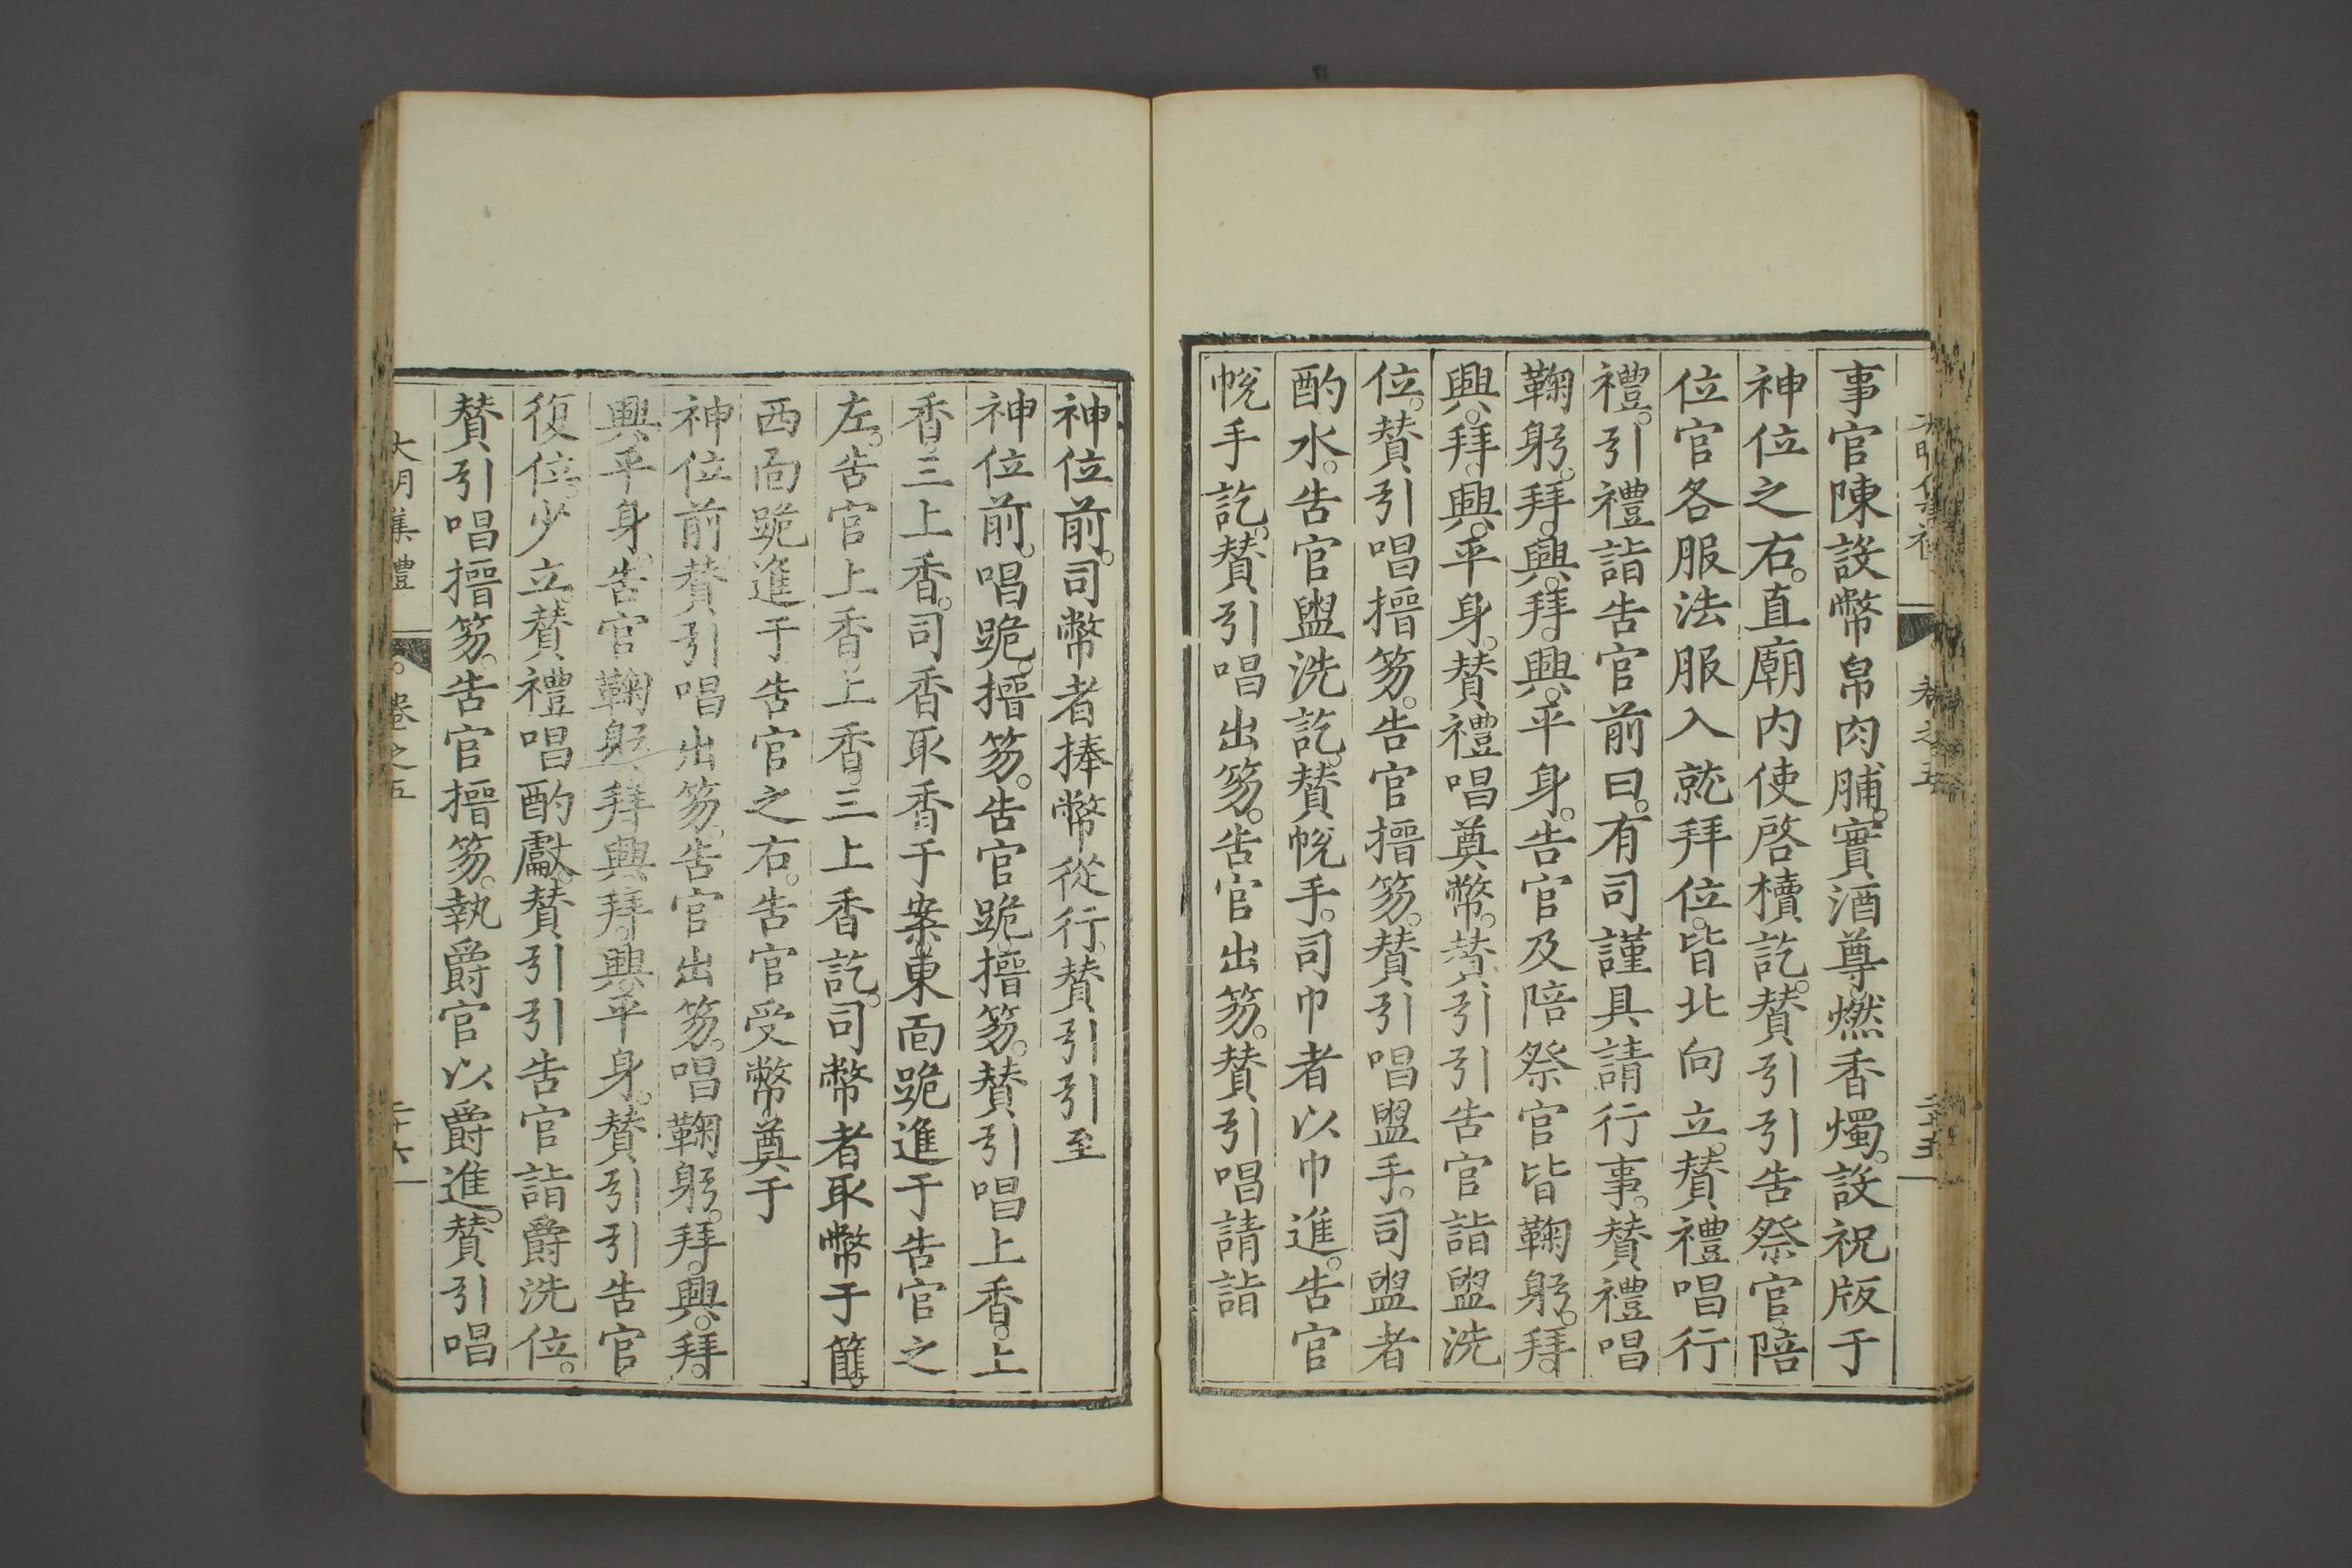 事官陳設幣帛肉脯。實酒尊。燃香燭。設祝版于
神位之右。直廟內使啓櫝訖。賛引引告祭官。陪
位官各服法服入就拜位。皆北向立。賛禮唱行
禮。引禮詣告官前曰。有司謹具請行事。賛禮唱
鞠躬。拜。興。拜。興。平身。告官及陪祭官皆鞠躬。拜。
興。拜。興。平身。賛禮唱奠幣。賛引引告官詣盥洗
位。賛引唱搢笏。告官搢笏。賛引唱盥手。司盥者
酌水。告官盥洗訖。賛帨手。司巾者以巾進。告官
帨手訖。賛引唱出笏。告官出笏。賛引唱請詣
神位前。司幣者捧幣從行。賛引引至
神位前。唱跪。搢笏。告官跪。搢笏。賛引唱上香。上
香。三上香。司香取香于案。東面跪進于告官之
左。告官上香。上香。三上香訖。司幣者取幣于篚。
西面跪進于告官之右。告官受幣奠于
神位前賛引唱出笏。告官出笏。唱鞠躬。拜。興。拜。
興平身。告官鞠躬。拜興拜。興。平身。賛引引告官
復位。少立。賛禮唱酌獻。賛引引告官詣爵洗位。
賛引唱搢笏。告官搢笏。執爵官以爵進。賛引唱
大明集禮 卷之五 二十六